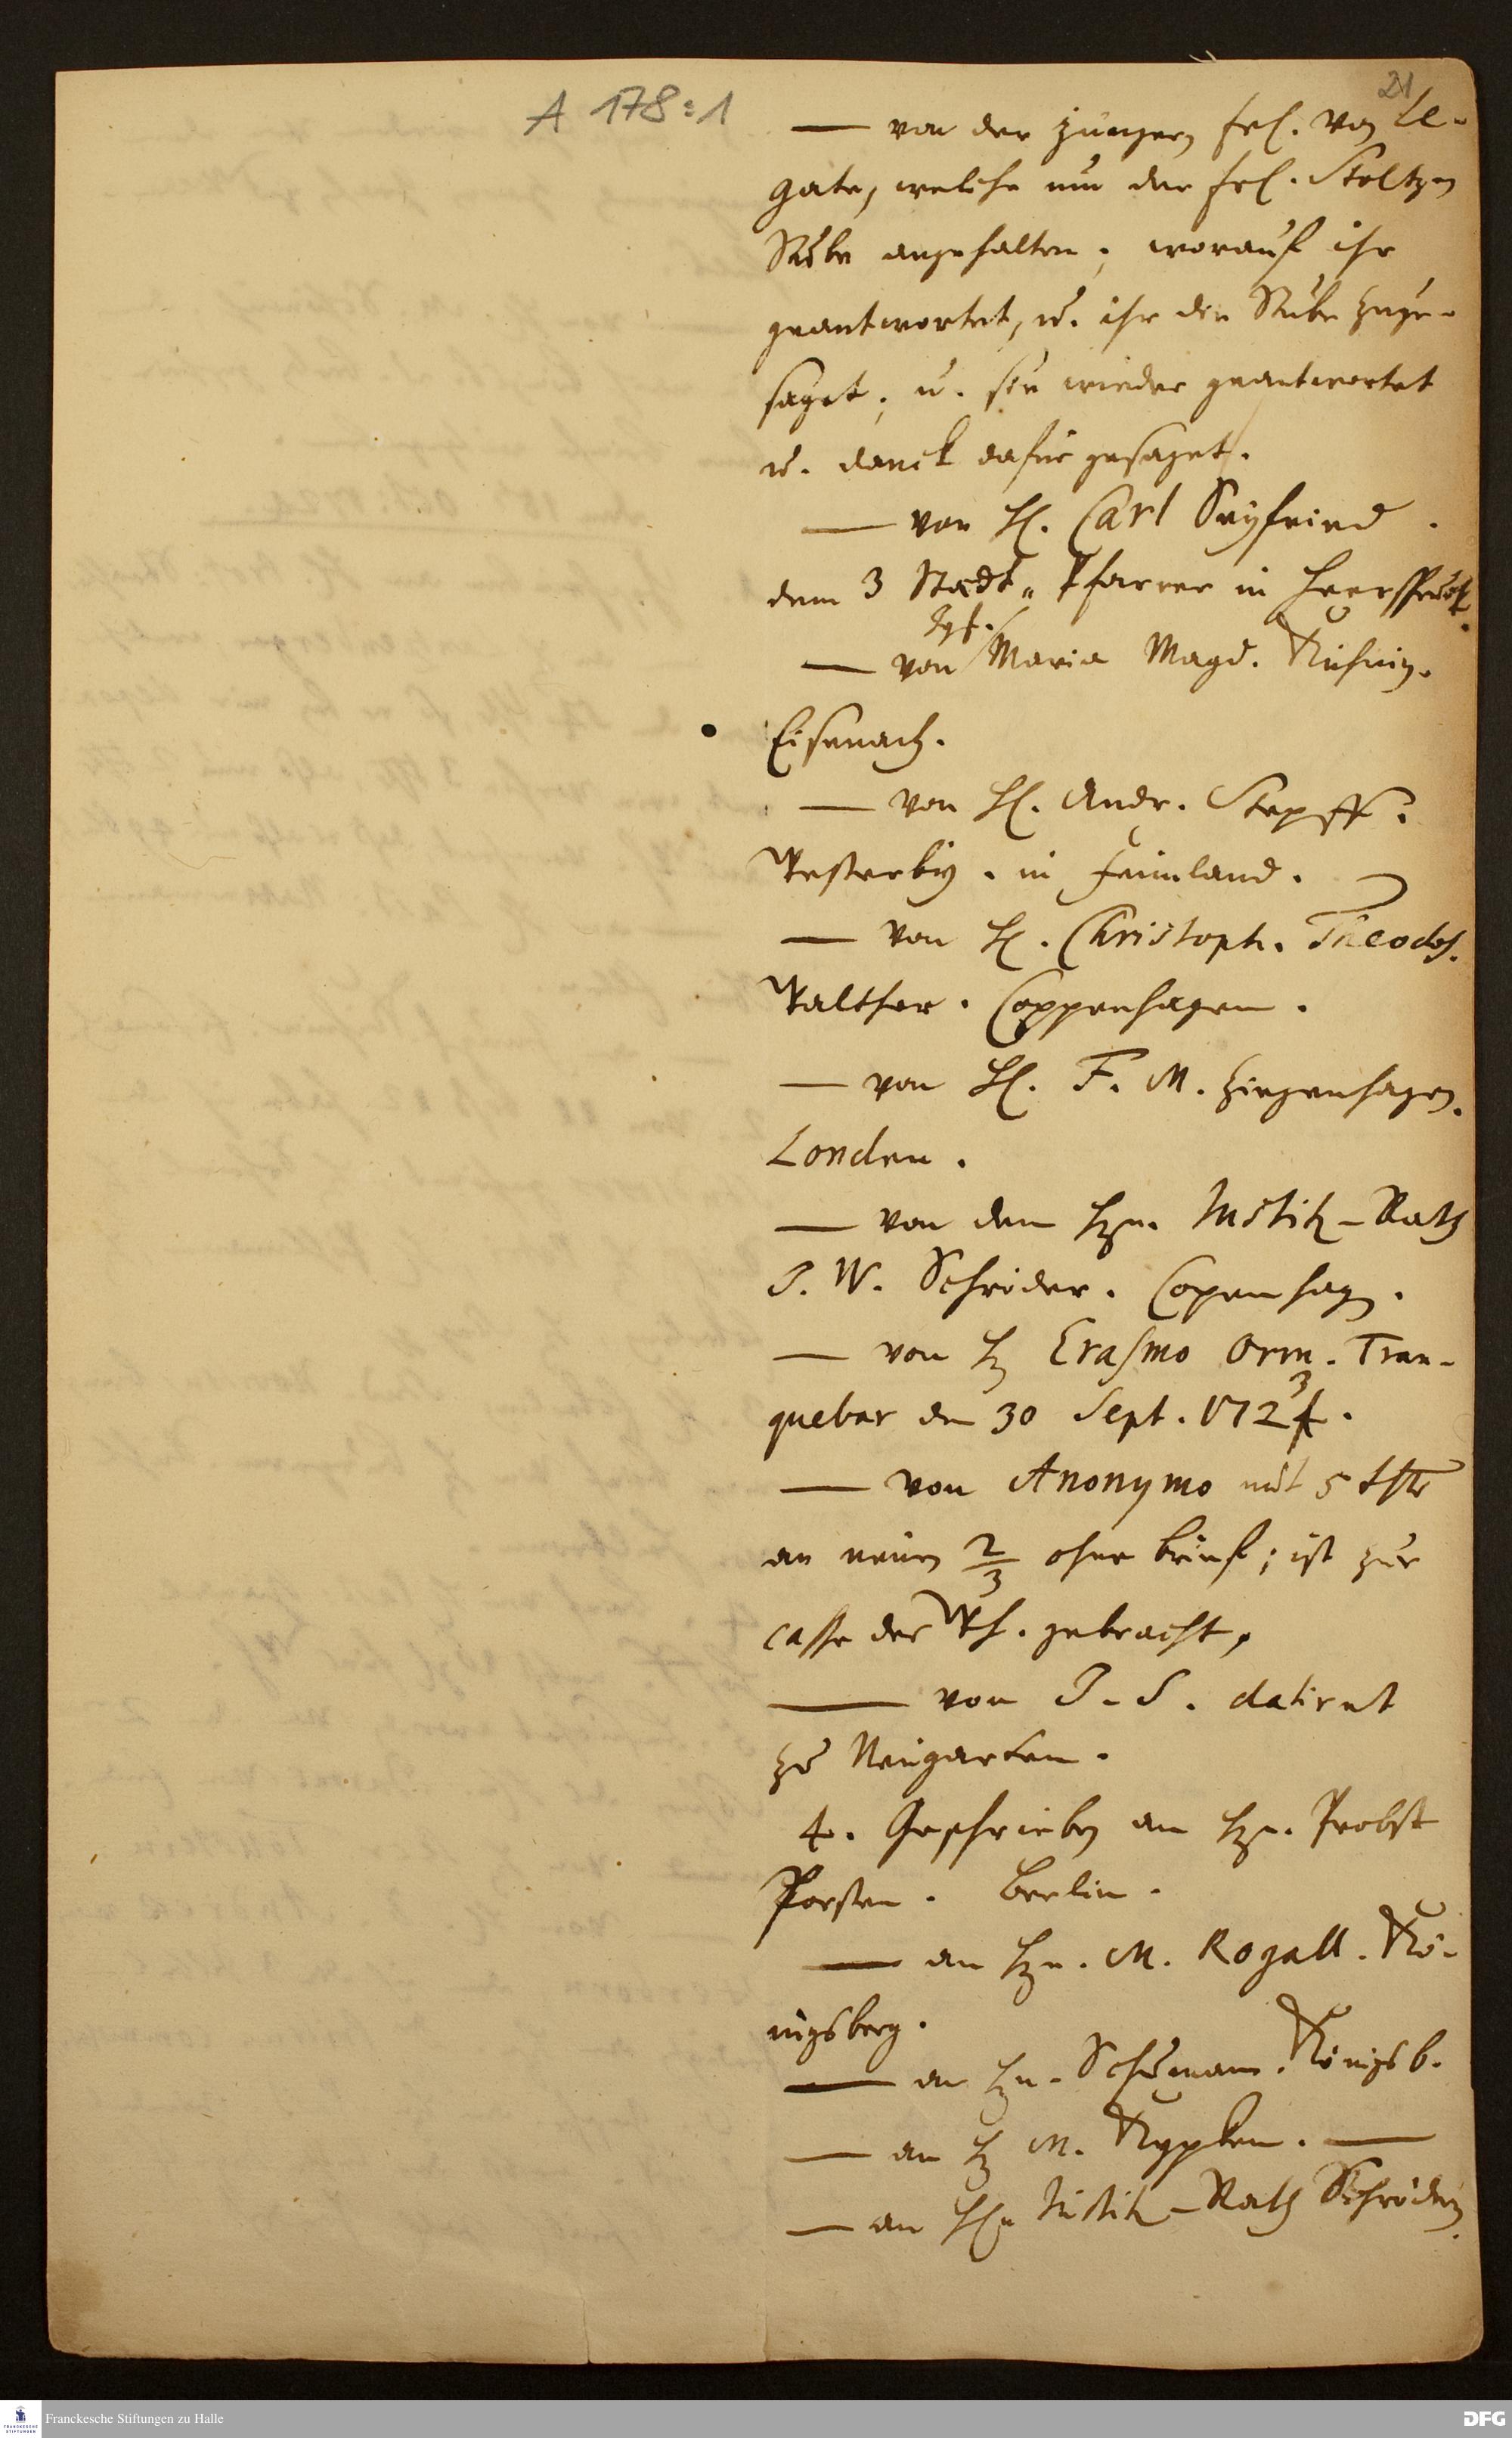 A 178:1
21
— von der jüngern frl. von Le-
gate, welche um der frl. Stoltzen
Stube angehalten; worauf ihr
geantwortet, u. ihr die Stube zuge-
saget; u. sie wieder geantwortet
u. danck dafür gesaget.
— von H. Carl Seyfried
dem 3 Stadt-Pfarrer in
Jgf.
— von Maria Magd. Kühnin.
Eisenach.
— von H. Andr. Stepff.
Westerby. in Finnland.
— von H. Christoph. Theodos.
Walther. Coppenhagen.
— von H. F. M. Ziegenhagen.
Londen.
— von dem Hrn. Justitz-Rath
J. W. Schröder. Copenhagen.
— von H Erasmo Orm. Tran-
quebar den 30 Sept. 1723.
— von Anonymo mit 5 thlr
an neuen 2/3 ohne brief; ist zur
casse des Wh. gebracht,
— von J. S. datiret
zu Neugarten.
4. Geschrieben an Hrn. Probst
Porsten. Berlin.
— an Hrn. M. Rogall. Kö-
nigsberg.
— an Hn. Schumann. Königsb.
— an H M. Kypken. —
— an Hn Justitz-Rath Schrödern.
Franckesche Stiftungen zu Halle
DFG